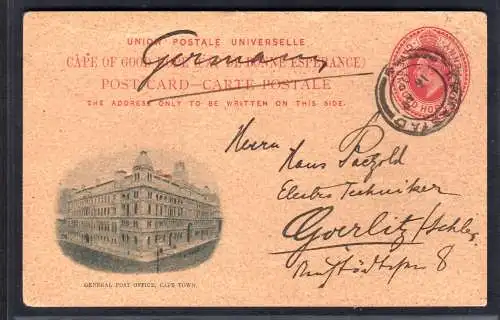 UNION POSTALE UNIVERSELLE
CAPE OF GOOD HOPE (CAP DE BONNE ESPÉRANCE)
Germany
POST CARD—CARTE POSTALE
THE ADDRESS ONLY TO BE WRITTEN ON THIS SIDE.
Herrn
Hans Paetzold
Electro Techniker
Goerlitz/Schles.
8
GENERAL POST OFFICE, CAPE TOWN.